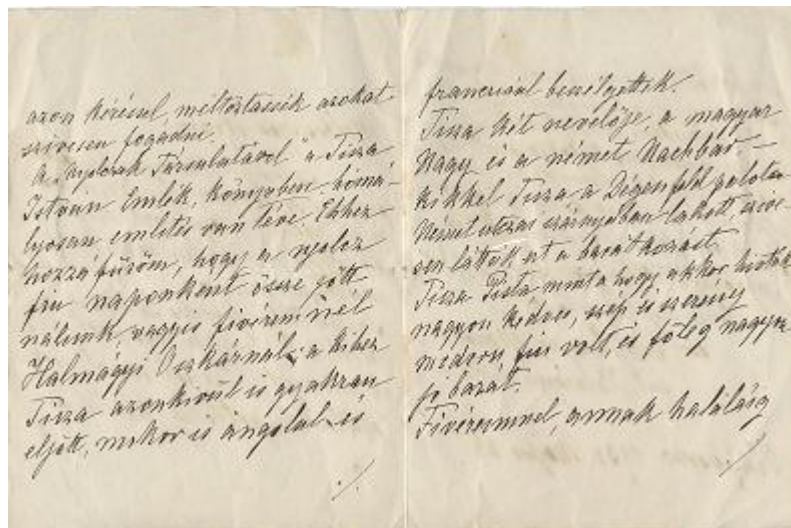 azon kéréssel méltóztassék azokat
szivesen fogadni.
A „nyolczak Társulatáról" a Tisza
István Emlék, könyvében homá-
lyosan említés van téve. Ehhez
hozzáfűzöm, hogy a nyolcz
fiu naponként össze jött
nálunk, vagyis fivéremnél
Halmágyi Oszkárnál, a kihez
Tisza azonkivül is gyakran
eljött, mikor is angolul és
./.
francziául beszélgettek.
Tisza két nevelője, a magyar
Nagy és a német Nachbar –
kikkel Tisza a Dégenfeld palota
Német utczai szárnyában lakott, szive-
sen látták ezt a barátkozást.
Tisza Pista mint a hogy akkor hivták
nagyon kedves, szép és szerény
modoru fiu volt, és főleg nagyon
jó barát.
Fivéremnek, annak haláláig
./.